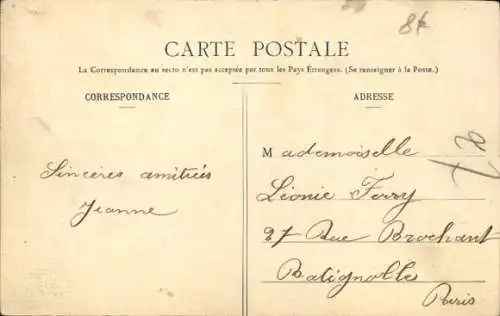 CARTE POSTALE
La Correspondance au recto n'est pas acceptée par tous les Pays Étrangers. (Se renseigner à la Poste.)
CORRESPONDANCE
ADRESSE
Sincères amitiés
Jeanne
Mademoiselle
Léonie Ferry
27 Rue Brochant
Batignolle
Paris